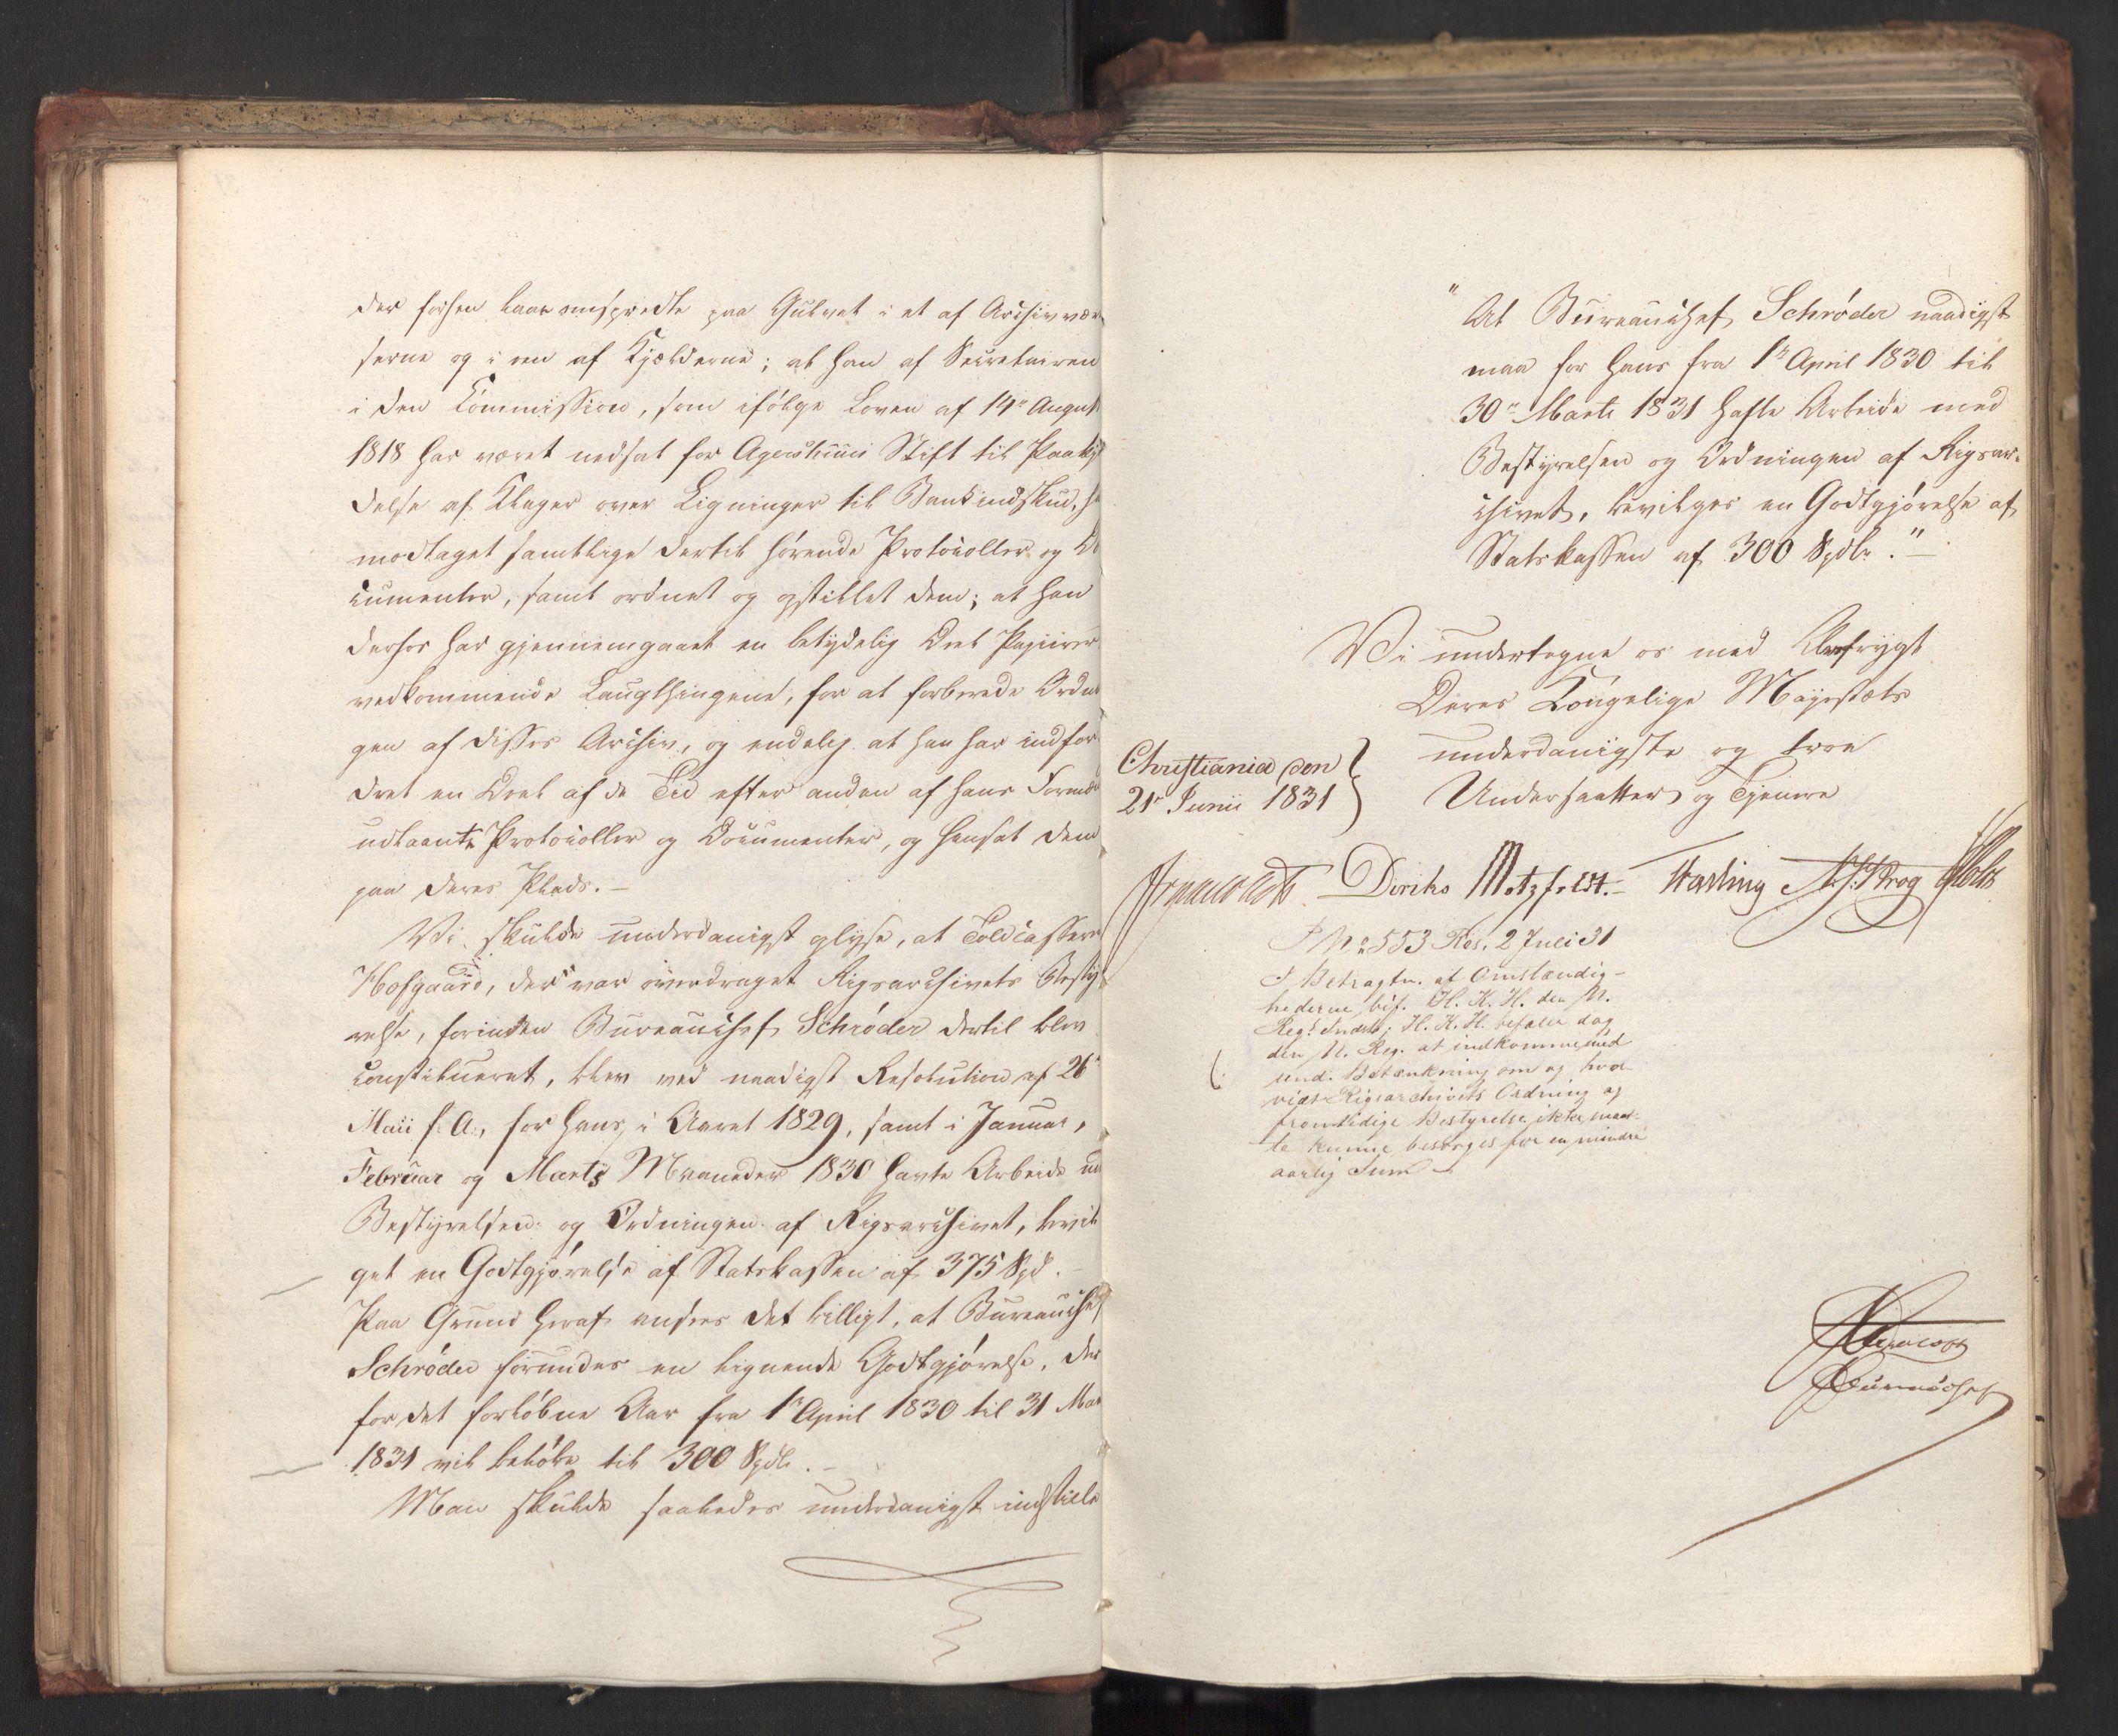 der forhen laae omspredte paa Gulvet i et af Archivvær-
serne og i een af Kjælderne; at han af Secretairen
i den Kommission, som ifølge Loven af 14de August
1818 har været nedsat for Agershuus Stift til Paakj
delse af Klager over Ligninger til Bankindskud, ha
modtaget samtlige dertil hørende Protocoller og Do
cumenter, samt ordnet og opstillet dem; at han
derhos har gjennemgaaet en betydelig Deel Papiirer
vedkommende Laugthingene, for at forberede Ordni
gen af disses Archiv, og endelig at han har indfor-
dret en Deel af de Tid efter anden af hans Formænd
udlaante Protocoller og Documenter, og hensat dem
paa deres Plads.-
Vi skulde underdanigst oplyse, at Toldcasserer
Hofgaard, der var overdraget Rigsarchivets Besty-
relse, forinden Bureauchef Schrøder dertil blev
constitueret, blev ved naadigst Resolution af 26de
Maii f. A., for hans, i Aaret 1829, samt i Januar,
Februar og Marts Maaneder 1830 havte Arbeide med
Bestyrelsen og Ordningen af Rigsarchivet, bevil
get en Godtgjørelse af Statskassen af 375 Spd.-
Paa Grund heraf ansees det billigt, at Bureauchef
Schrøder forundes en lignende Godtgjørelse, der
for det forløbne Aar fra 1te April 1830 til 31 Mar
1831 vil beløbe til 300 Spdlr.-
Man skulde saaledes underdanigst indstille
"At Bureauchef Schrøder naadigst
maa for hans fra 1te April 1830 til
30te Marts 1831 hafte Arbeide med
Bestyrelsen og Ordningen af Rigsar-
chivet, bevilges en Godtgjørelse af
Statskassen af 300 Spdlr."-
Vi undertegne os med Ærefrygt
Deres Kongelige Majestæts
underdanigste og troe
Undersaatter og Tjenere
Christiania den
21de Junii 1831
Diriks Motzfeldt.- Harbing Krog Holst
No 553 Res. 2 Juli 31
I Betragtn. af Omstændig-
hederne bif. H. K. H. den N.
Regs Indst; H. K. H. befaler dog
den N. Reg. at indkomme med
und. Betænkning om og hvor
vidt Rigsarchivets Ordning og
fremtidige Bestyrelse ikke maat-
te kunne besørges for en mindre
aarlig Sum
Bureauchef